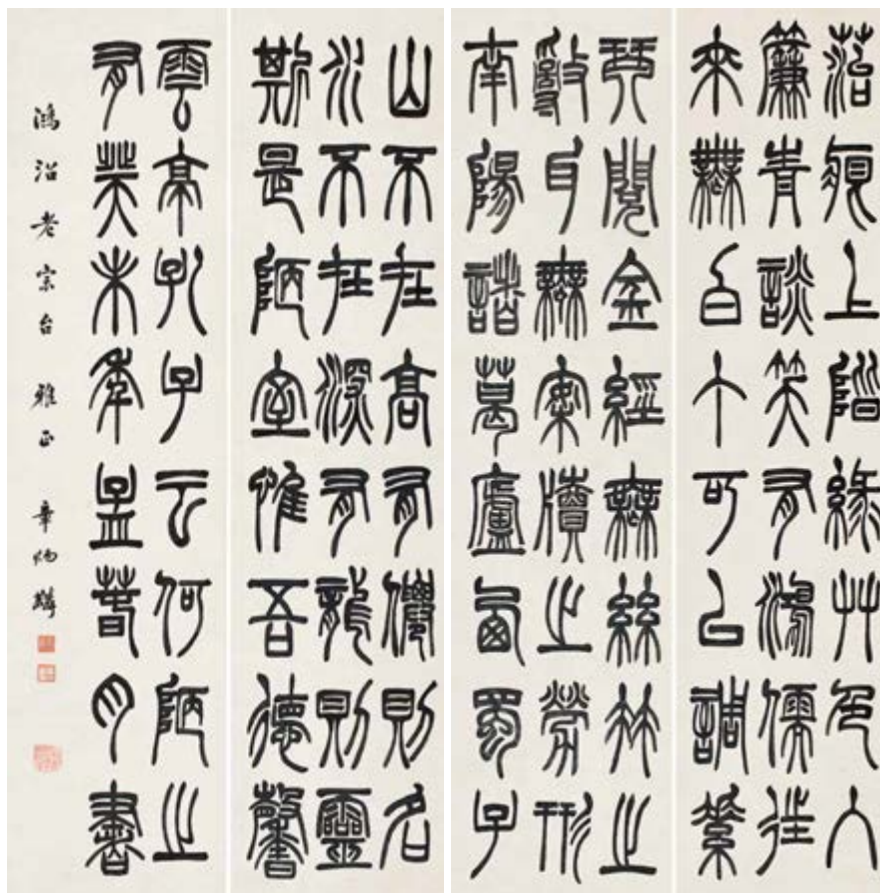 山不在高有僊則名
水不在深有龍則靈
斯是陋室惟吾德馨
菭痕上階緑艸色入
簾青談笑有鴻儒往
來無白丁可以調素
琴閱金經無絲竹之
亂耳無案牘之勞形
南陽諸葛廬西蜀子
雲亭孔子云何陋之
有癸未年孟春月書
鴻沼老宗台 雅正 章炳麟